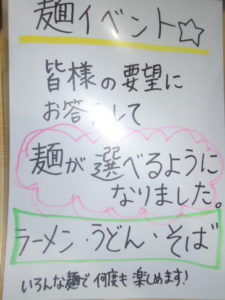 麺イベント☆
皆様の要望に
お答えして
麺が選べるように
なりました。
ラーメン・うどん・そば
いろんな麺で何度も楽しめます!